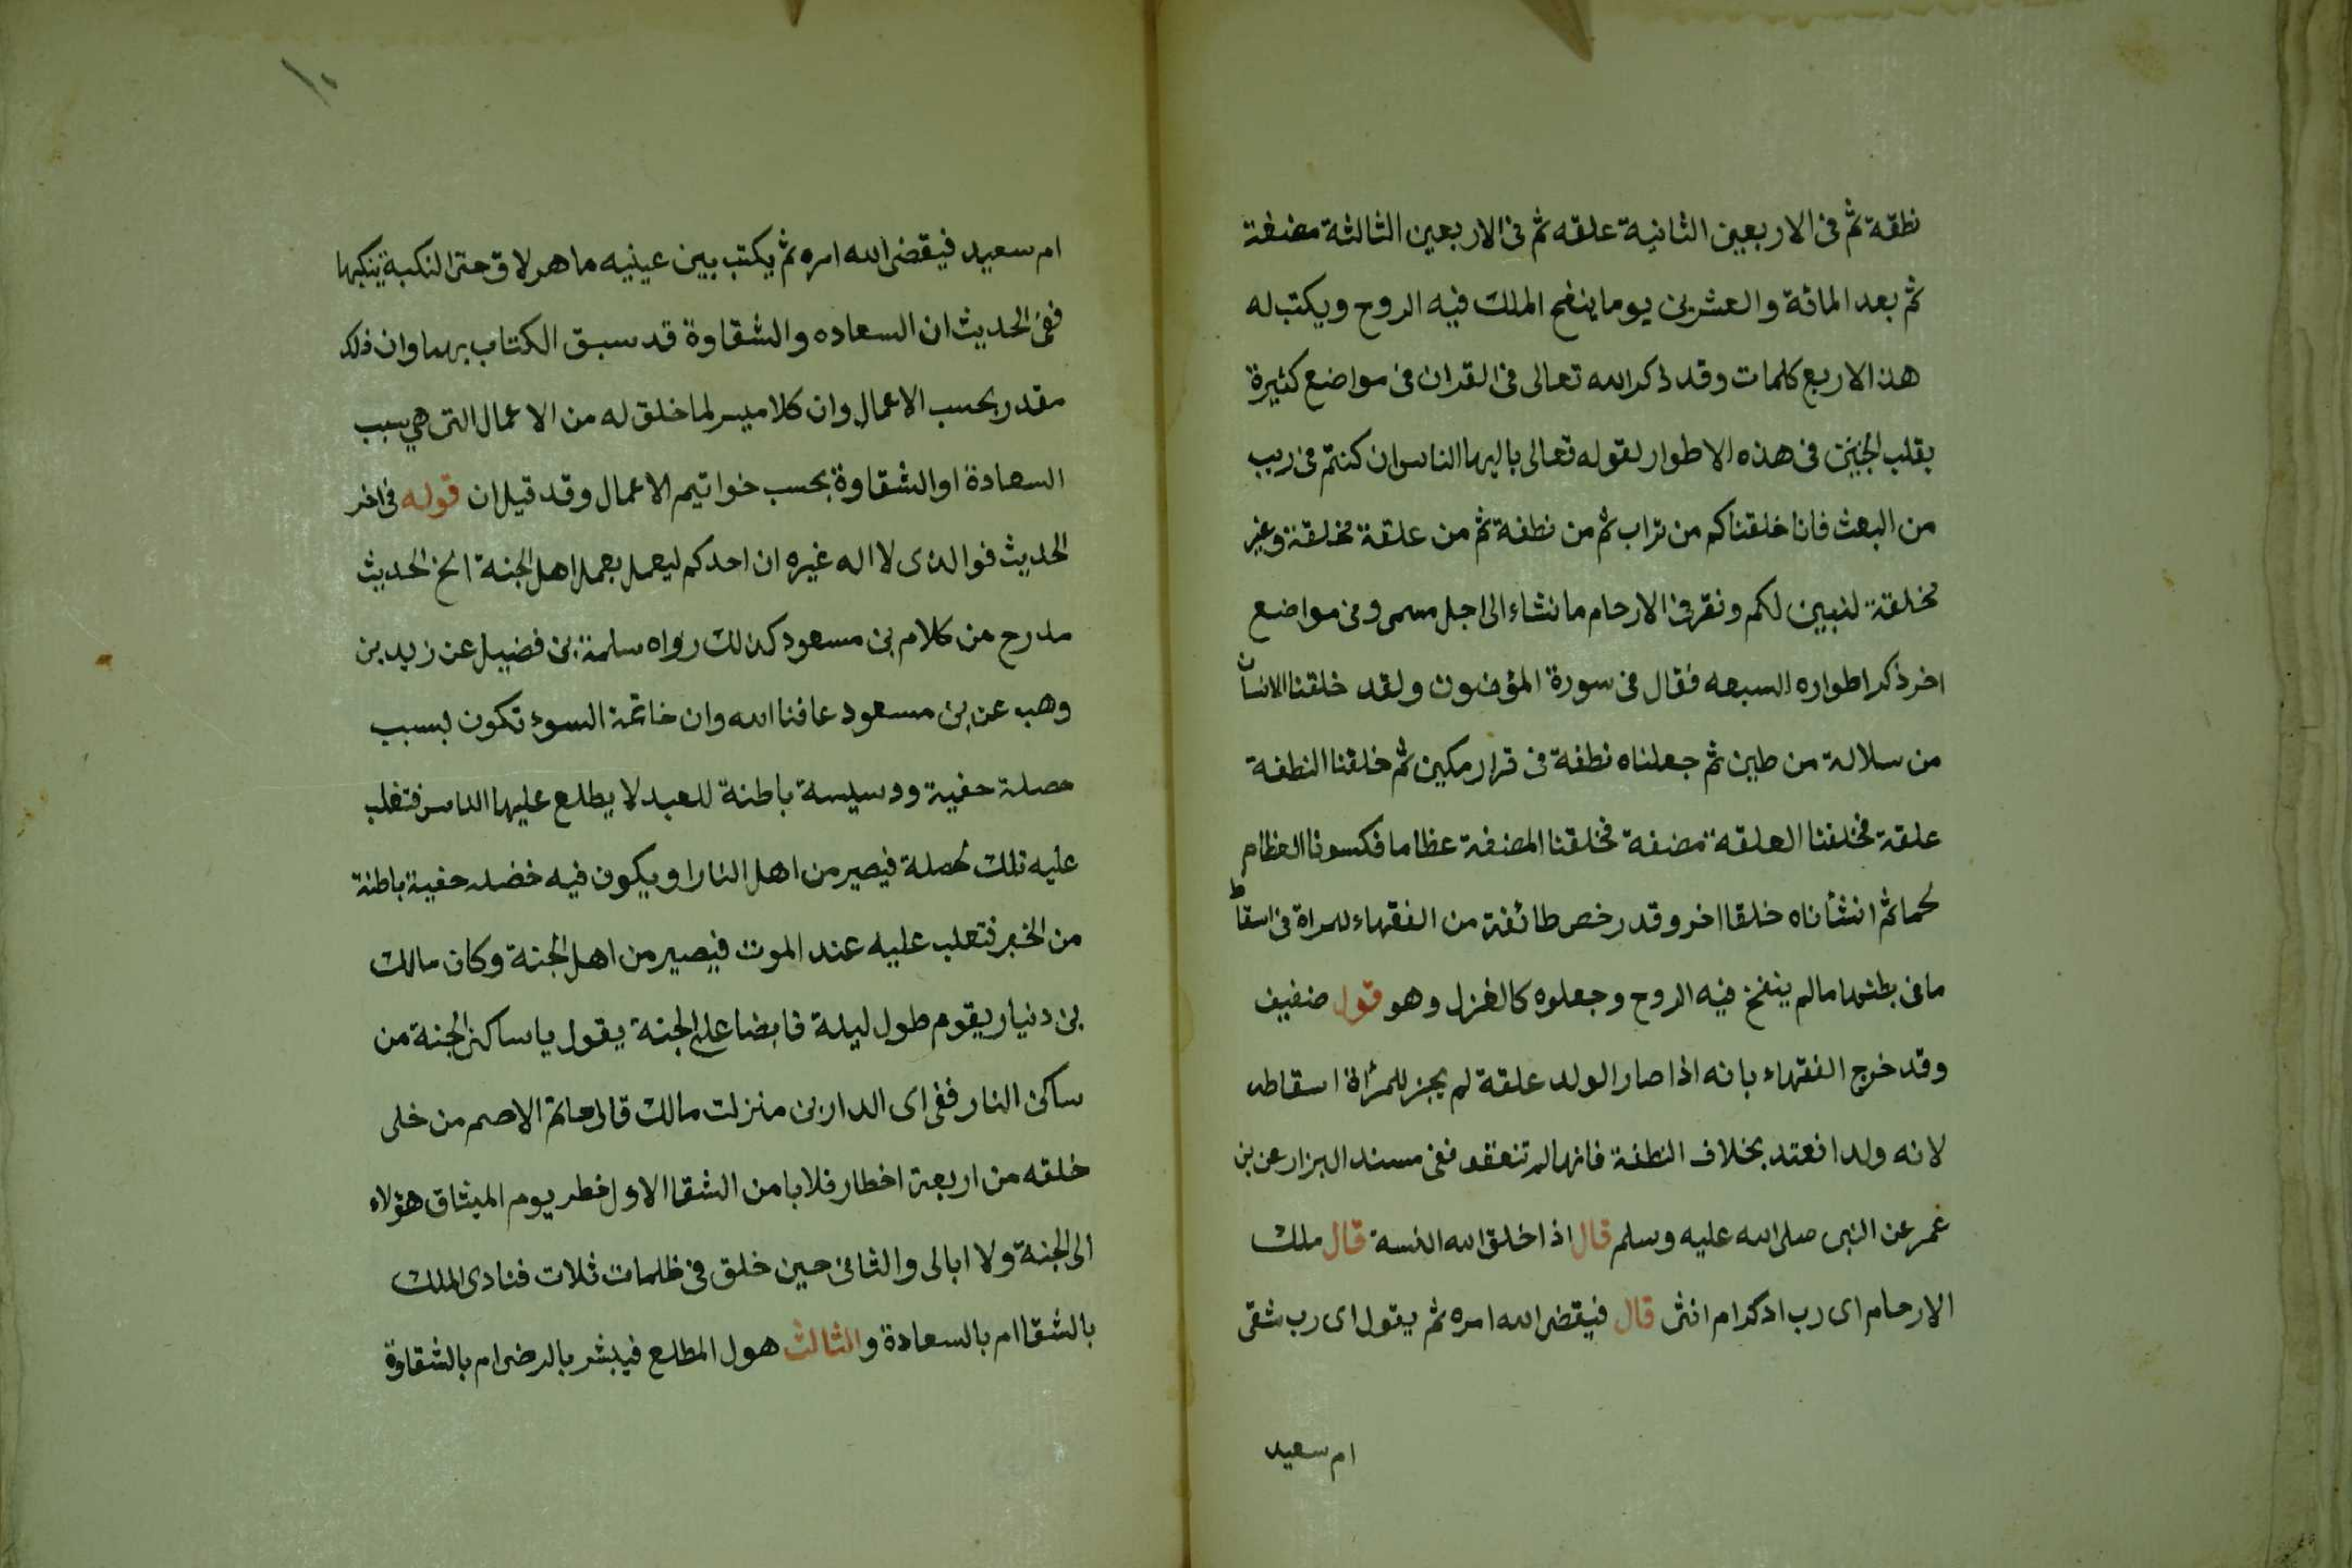 نطقة ثم فى الاربعين الثانية علقه ثم فى الاربعين الثالثة مضغة
ثم بعد المائة والعشرين يوما ينفخ الملك فيه الروح ويكتب له
هذا الاربع كلمات وقد ذكر الله تعالى فى القران فى مواضع كثيرة
بقلب الجنين فى هذه الاطوار لقوله تعالى ياايها الناس ان كنتم فى ريب
من البعث فانا خلقناكم من تراب ثم من نطفة ثم من علقة مخلقة وغير
مخلقة لنبين لكم ونقر فى الارحام ما نشاء الى اجل مسمى وفى مواضع
اخر ذكر اطواره السبعه فقال فى سورة المؤمنون ولقد خلقنا الانسان
من سلالة من طين ثم جعلناه نطفة فى قرار مكين ثم خلقنا النطفة
علقة فخلقنا العلقة مضغة فخلقنا المضغة عظاما فكسونا العظام
لحما ثم انشأناه خلقا اخر وقد رخص طائفة من الفقهاء للمراة فى اسقاط
مافى بطنها مالم ينفخ فيه الروح وجعلوه كالغزل وهو قول ضغيف
وقد خرج الفقهاء بانه اذا صار الولد علقة لم يجز للمرأة اسقاطه
لانه ولد انعتد بخلاف النطفة فانها لم تنعقد ففى مسند البزار عن بن
عمر عن النبى صلى الله عليه وسلم قال اذا خلق الله النسة قال ملك
الارحام اى رب ادكر ام انثى قال فيقضى الله امره ثم يقول اى رب شقى
ام سعيد
١٠
ام سعيد فيقضى الله امره ثم يكتب بين عينيه ما هو لاق حتى النكبة ينكبها
ففى الحديث ان السعاده والشقاوة قد سبق الكتاب بهما وان ذلك
مقدر بحسب الاعمال وان كلا ميسر لما خلق له من الاعمال التى هي سبب
السعادة او الشقاوة بحسب خواتيم الاعمال وقد قيل ان قوله فى اخر
الحديث فوالذى لا اله غيره ان احدكم ليعمل بعمل اهل الجنة الخ الحديث
مدرج من كلام بن مسعود كذلك رواه سلمة بن فضيل عن زيد بن
وهب عن بن مسعود عافنا الله وان خاتمة السوء تكون بسبب
حصلة حفية ودسيسة باطنة للعبد لا يطلع عليها الناس فتغلب
عليه تلك لحصلة فيصير من اهل النار او يكون فيه خضله حفية باطنة
من الخير فتعلب عليه عند الموت فيصير من اهل الجنة وكان مالك
بن دنيار يقوم طول ليلة قابضا على الجنة يقول يا ساكن الجنة من
ساكن النار ففى اى الدارين منزلت مالك قال حاتم الاصم من خلى
خلقه من اربعة اخطار فلا بامن الشقا الاول خطر يوم الميثاق هؤلاء
الى الجنة ولا ابالى والثانى حين خلق فى ظلمات ثلاث فنادى الملك
بالشقا ام بالسعادة والثالث هول المطلع فيبشر بالرضى ام بالشقاوة